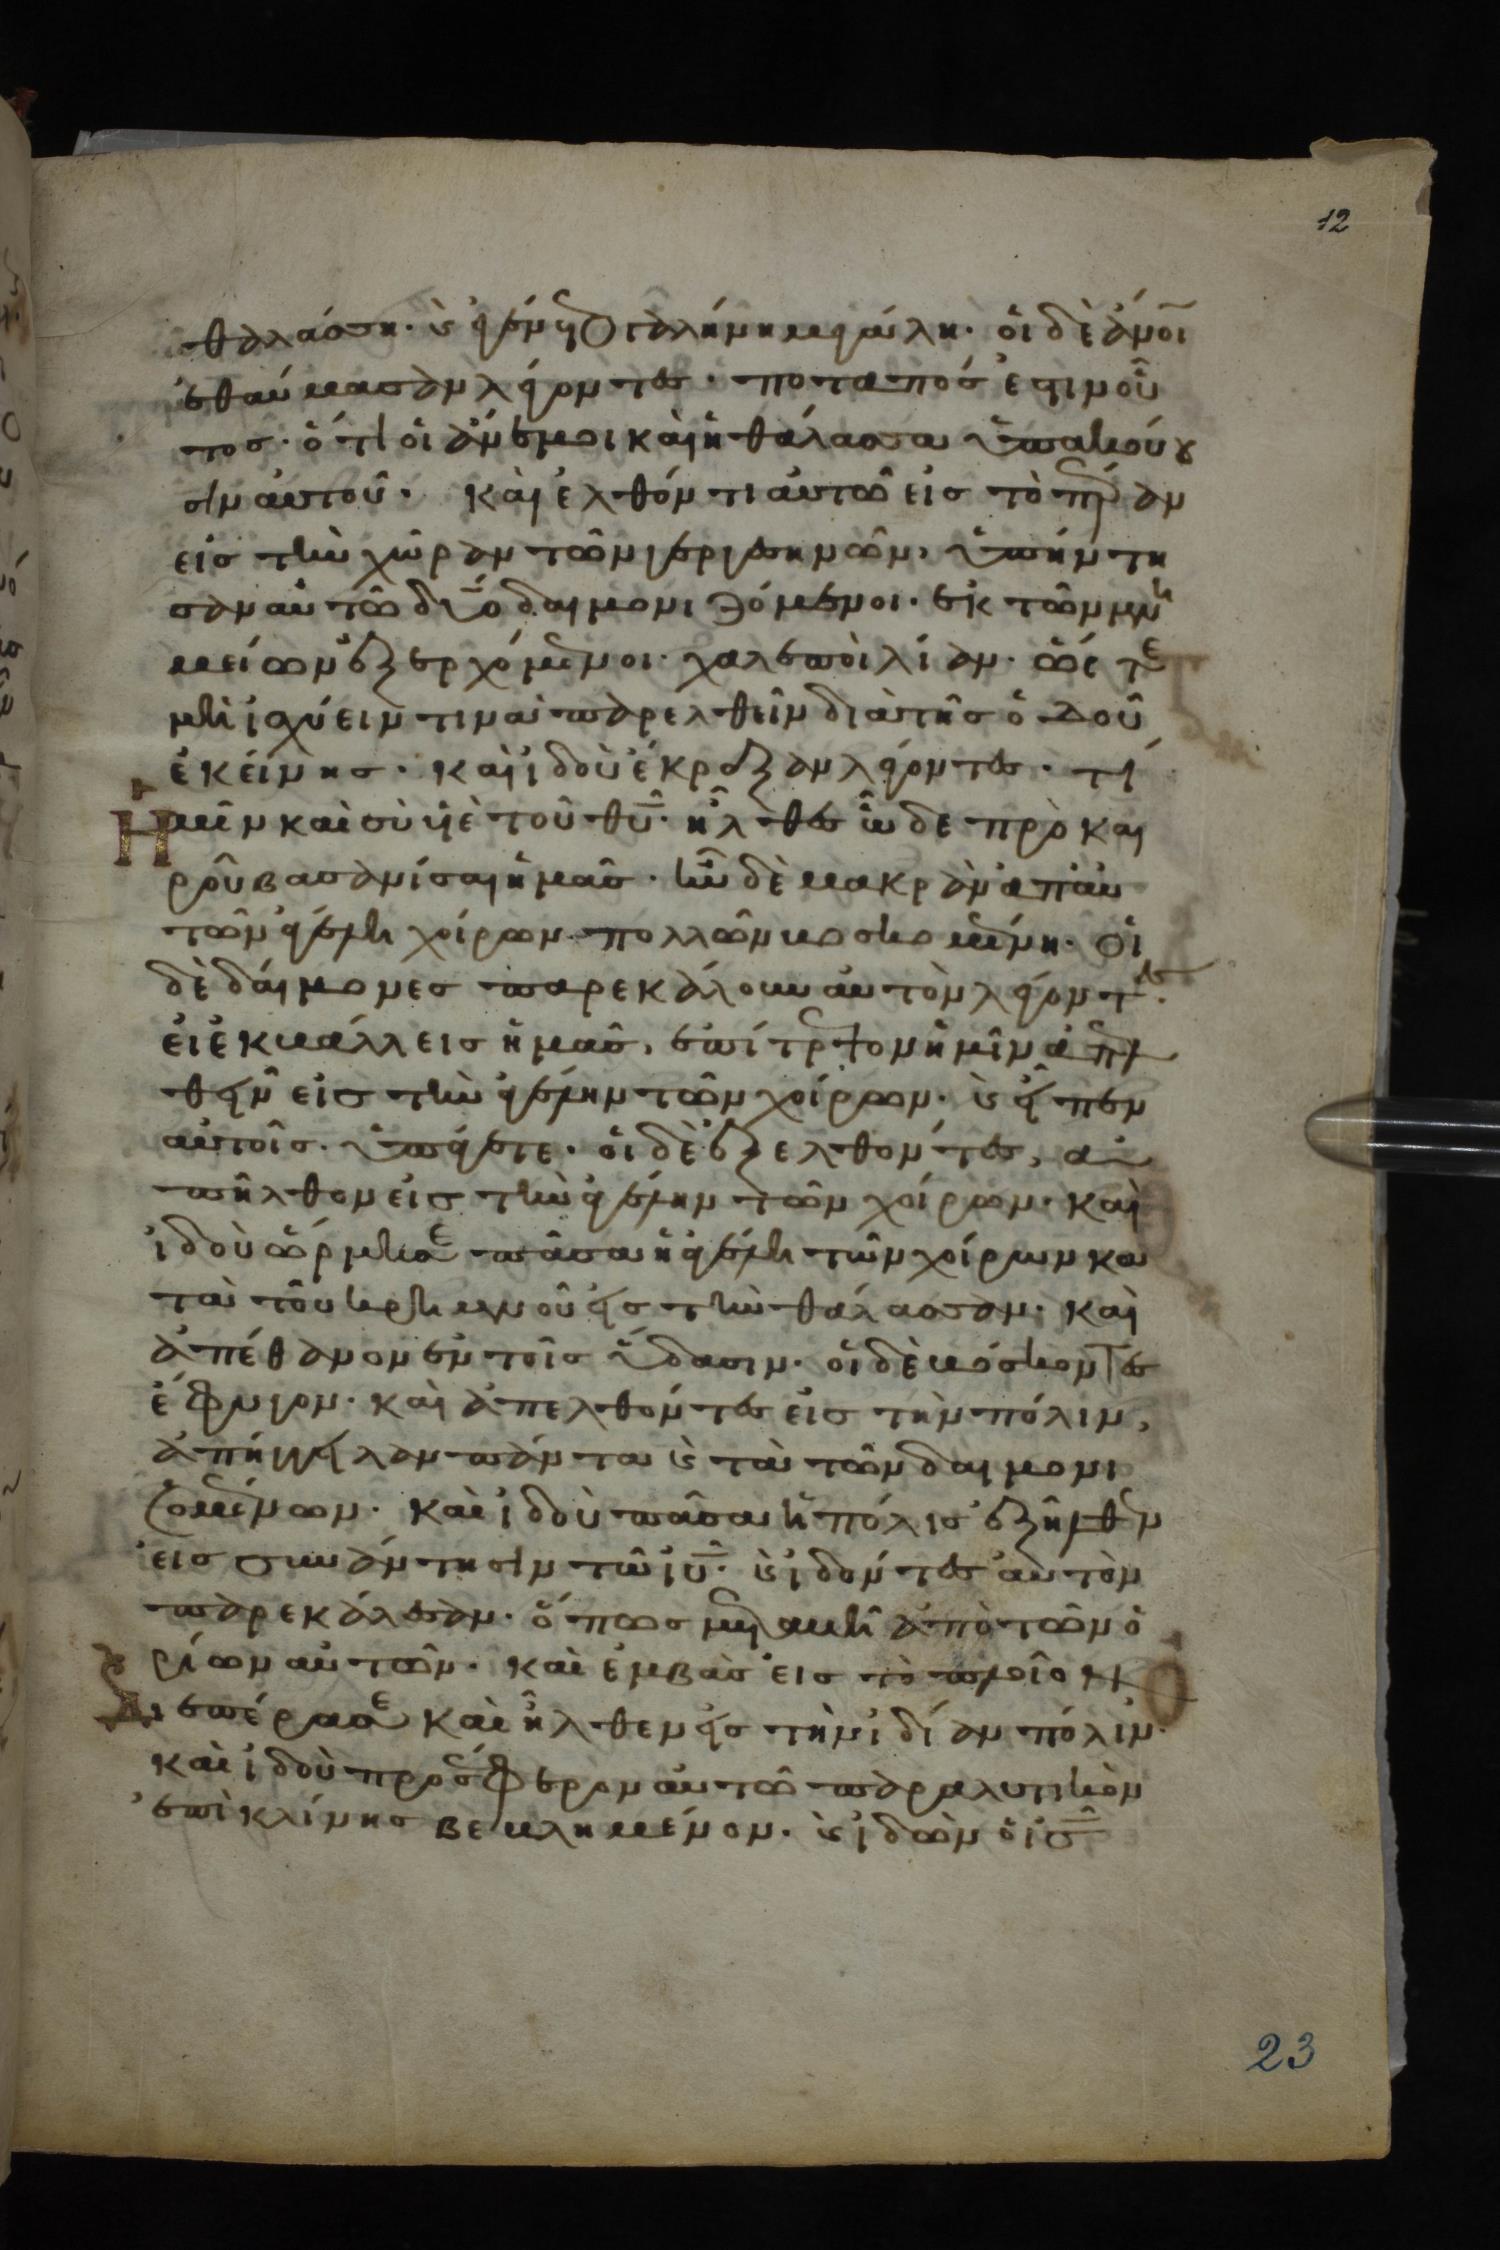 12
θαλάσση. κ(αὶ) ἐγένετο γαλήνη μεγάλη. οἱ δὲ ἄνοι
ἐθαύμασαν λέγοντες. ποταπός ἐστιν οὗ
τος. ὅτι οἱ ἄνεμοι καὶ ἡ θάλασσα ὑπακού
σιν αὐτοῦ. καὶ ἐλθόντι αὐτῶ εἰς τὸ πέραν
εἰς τὴν χώραν τῶν γεργεσηνῶν, ὑπήντη
σαν αὐτῶ δύο δαιμονιζόμενοι. ἐκ τῶν μνη
μείων ἐξερχόμενοι. χαλεποὶ λίαν. ὥστε
μὴ ἰσχύειν τινα παρελθεῖν διὰ τῆς ὁδοῦ
ἐκείνης. καὶ ἰδοὺ ἔκραξαν λέγοντες. τί
ἡμῖν καὶ σὺ υἱὲ τοῦ θυ. ἦλθες ὧδε πρὸ και
ροῦ βασανίσαι ἡμᾶς. ἦν δὲ μακρὰν ἀπ αὐ
τῶν ἀγέλη χοίρων πολλῶν βοσκομένη. οἱ
δὲ δαίμονες παρεκάλουν αὐτὸν λέγοντες.
εἰ ἐκβάλλεις ἡμᾶς, ἐπίτρεψον ἡμῖν ἀπελ
θεῖν εἰς τὴν ἀγέλην τῶν χοίρων. κ(αὶ) εἶπεν
αὐτοῖς. ὑπάγετε. οἱ δὲ ἐξελθόντες, ἀ
πῆλθον εἰς τὴν ἀγέλην τῶν χοίρων. καὶ
ἰδοὺ ὥρμησε πᾶσα ἡ ἀγέλη τῶν χοίρων κα
τὰ τοῦ κρημνοῦ εἰς τὴν θάλασσαν. καὶ
ἀπέθανον ἐν τοῖς ὕδασιν. οἱ δὲ βόσκοντες
ἔφυγον. καὶ ἀπελθόντες εἰς τὴν πόλιν,
ἀπήγγειλαν πάντα κ(αὶ) τὰ τῶν δαιμονι
ζομένων. καὶ ἰδοὺ πᾶσα ἡ πόλις ἐξῆλθεν
εἰς συνάντησιν τῶ ιυ. κ(αὶ) ἰδόντες αὐτὸν
παρεκάλεσαν. ὅπως μεταβῆ ἀπὸ τῶν ὁ
ρίων αὐτῶν. καὶ ἐμβὰς εἰς τὸ πλοῖον
διεπέρασε καὶ ἦλθεν εἰς τὴν ἰδίαν πόλιν.
καὶ ἰδοὺ προσέφερον αὐτῶ παραλυτικὸν
ἐπὶ κλίνης βεβλημένον. κ(αὶ) ἰδὼν ὁ ις
23